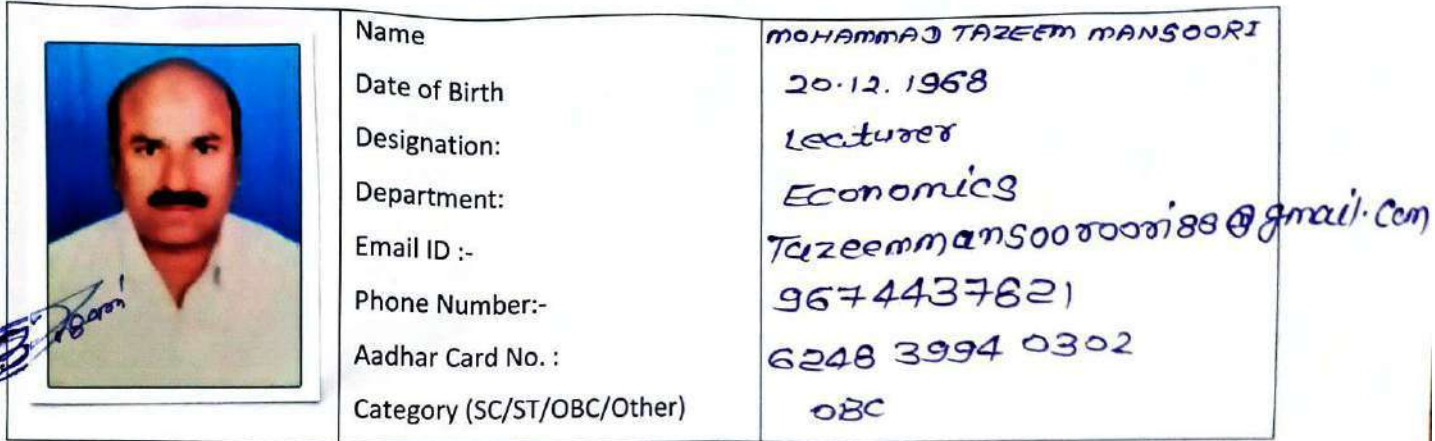 Name MOHAMMAD TAZEEM MANSOORI
Date of Birth 20.12.1968
Designation: Lecturer
Department: Economics
Email ID :- Tazeemmansooroori88@gmail.com
Phone Number:- 9674437621
Aadhar Card No. : 6248 3994 0302
Category (SC/ST/OBC/Other) OBC